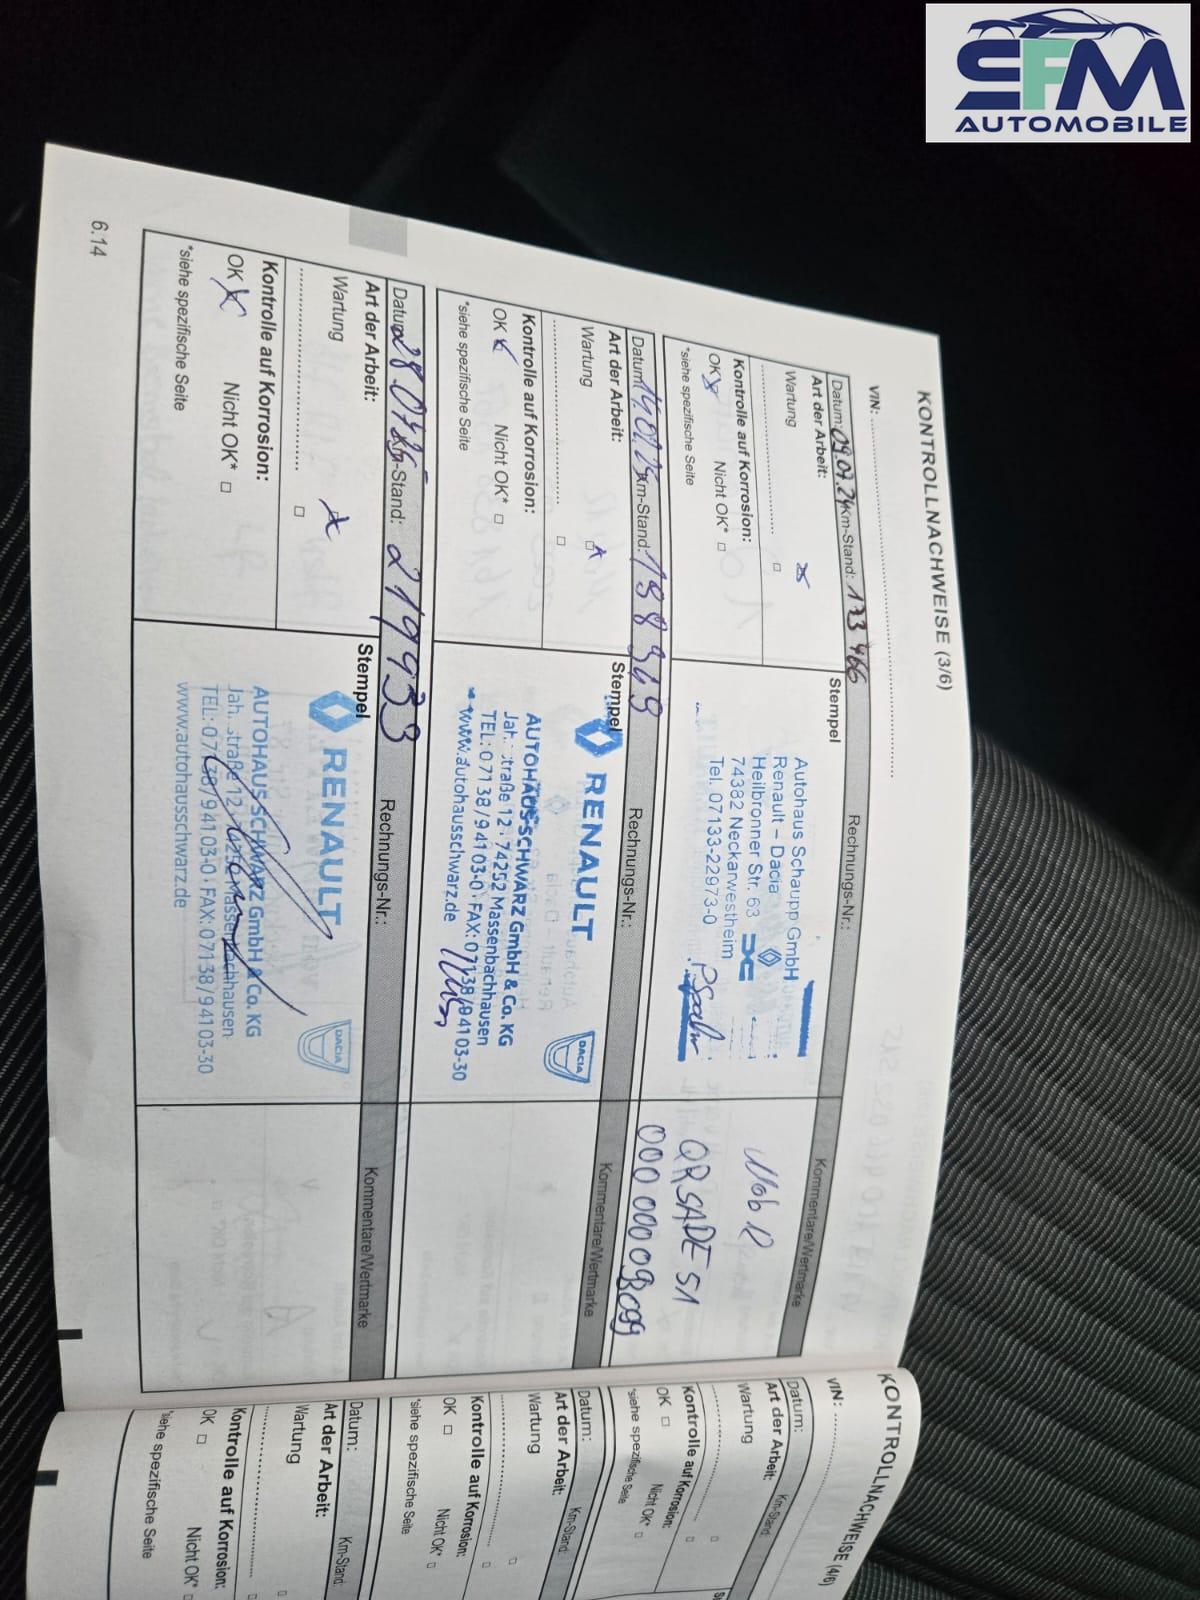 SFM
AUTOMOBILE
KONTROLLNACHWEISE (3/6)
VIN:
Datum: 09.07.24 Km-Stand: 173 466
Rechnungs-Nr.:
Kommentare/Wertmarke
Art der Arbeit:
Wartung
Kontrolle auf Korrosion:
OK Nicht OK*
*siehe spezifische Seite
Stempel
Autohaus Schaupp GmbH
Renault – Dacia
Heilbronner Str. 63
74382 Neckarwestheim
Tel. 07133-22973-0
Mob 12
QRSADE51
Datum: Km-Stand:
Rechnungs-Nr.:
Kommentare/Wertmarke
Art der Arbeit:
Wartung
Kontrolle auf Korrosion:
OK Nicht OK*
*siehe spezifische Seite
Stempel
RENAULT
DACIA
AUTOHAUS SCHWARZ GmbH & Co. KG
straße 12 · 74252 Massenbachhausen
TEL: 07138/94103-0 · FAX: 07138/94103-30
www.autohausschwarz.de
Datum: 28.07.25 Km-Stand: 219939
Rechnungs-Nr.:
Kommentare/Wertmarke
Art der Arbeit:
Wartung
Kontrolle auf Korrosion:
OK Nicht OK*
*siehe spezifische Seite
Stempel
RENAULT
DACIA
AUTOHAUS SCHWARZ GmbH & Co. KG
straße 12 Massenbachhausen
TEL: 07138/94103-0 · FAX: 07138/94103-30
www.autohausschwarz.de
6.14
KONTROLLNACHWEISE (4/6)
VIN:
Datum: Km-Stand:
Art der Arbeit:
Wartung
Kontrolle auf Korrosion:
OK Nicht OK*
*siehe spezifische Seite
Datum: Km-Stand:
Art der Arbeit:
Wartung
Kontrolle auf Korrosion:
OK Nicht OK*
*siehe spezifische Seite
Datum: Km-Stand:
Art der Arbeit:
Wartung
Kontrolle auf Korrosion:
OK Nicht OK*
*siehe spezifische Seite